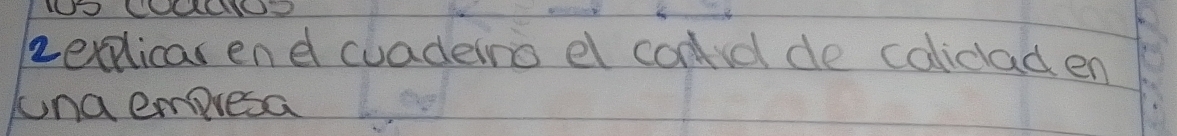 los cuadros
2 explicar en el cuaderno el control de calidad en
una empresa